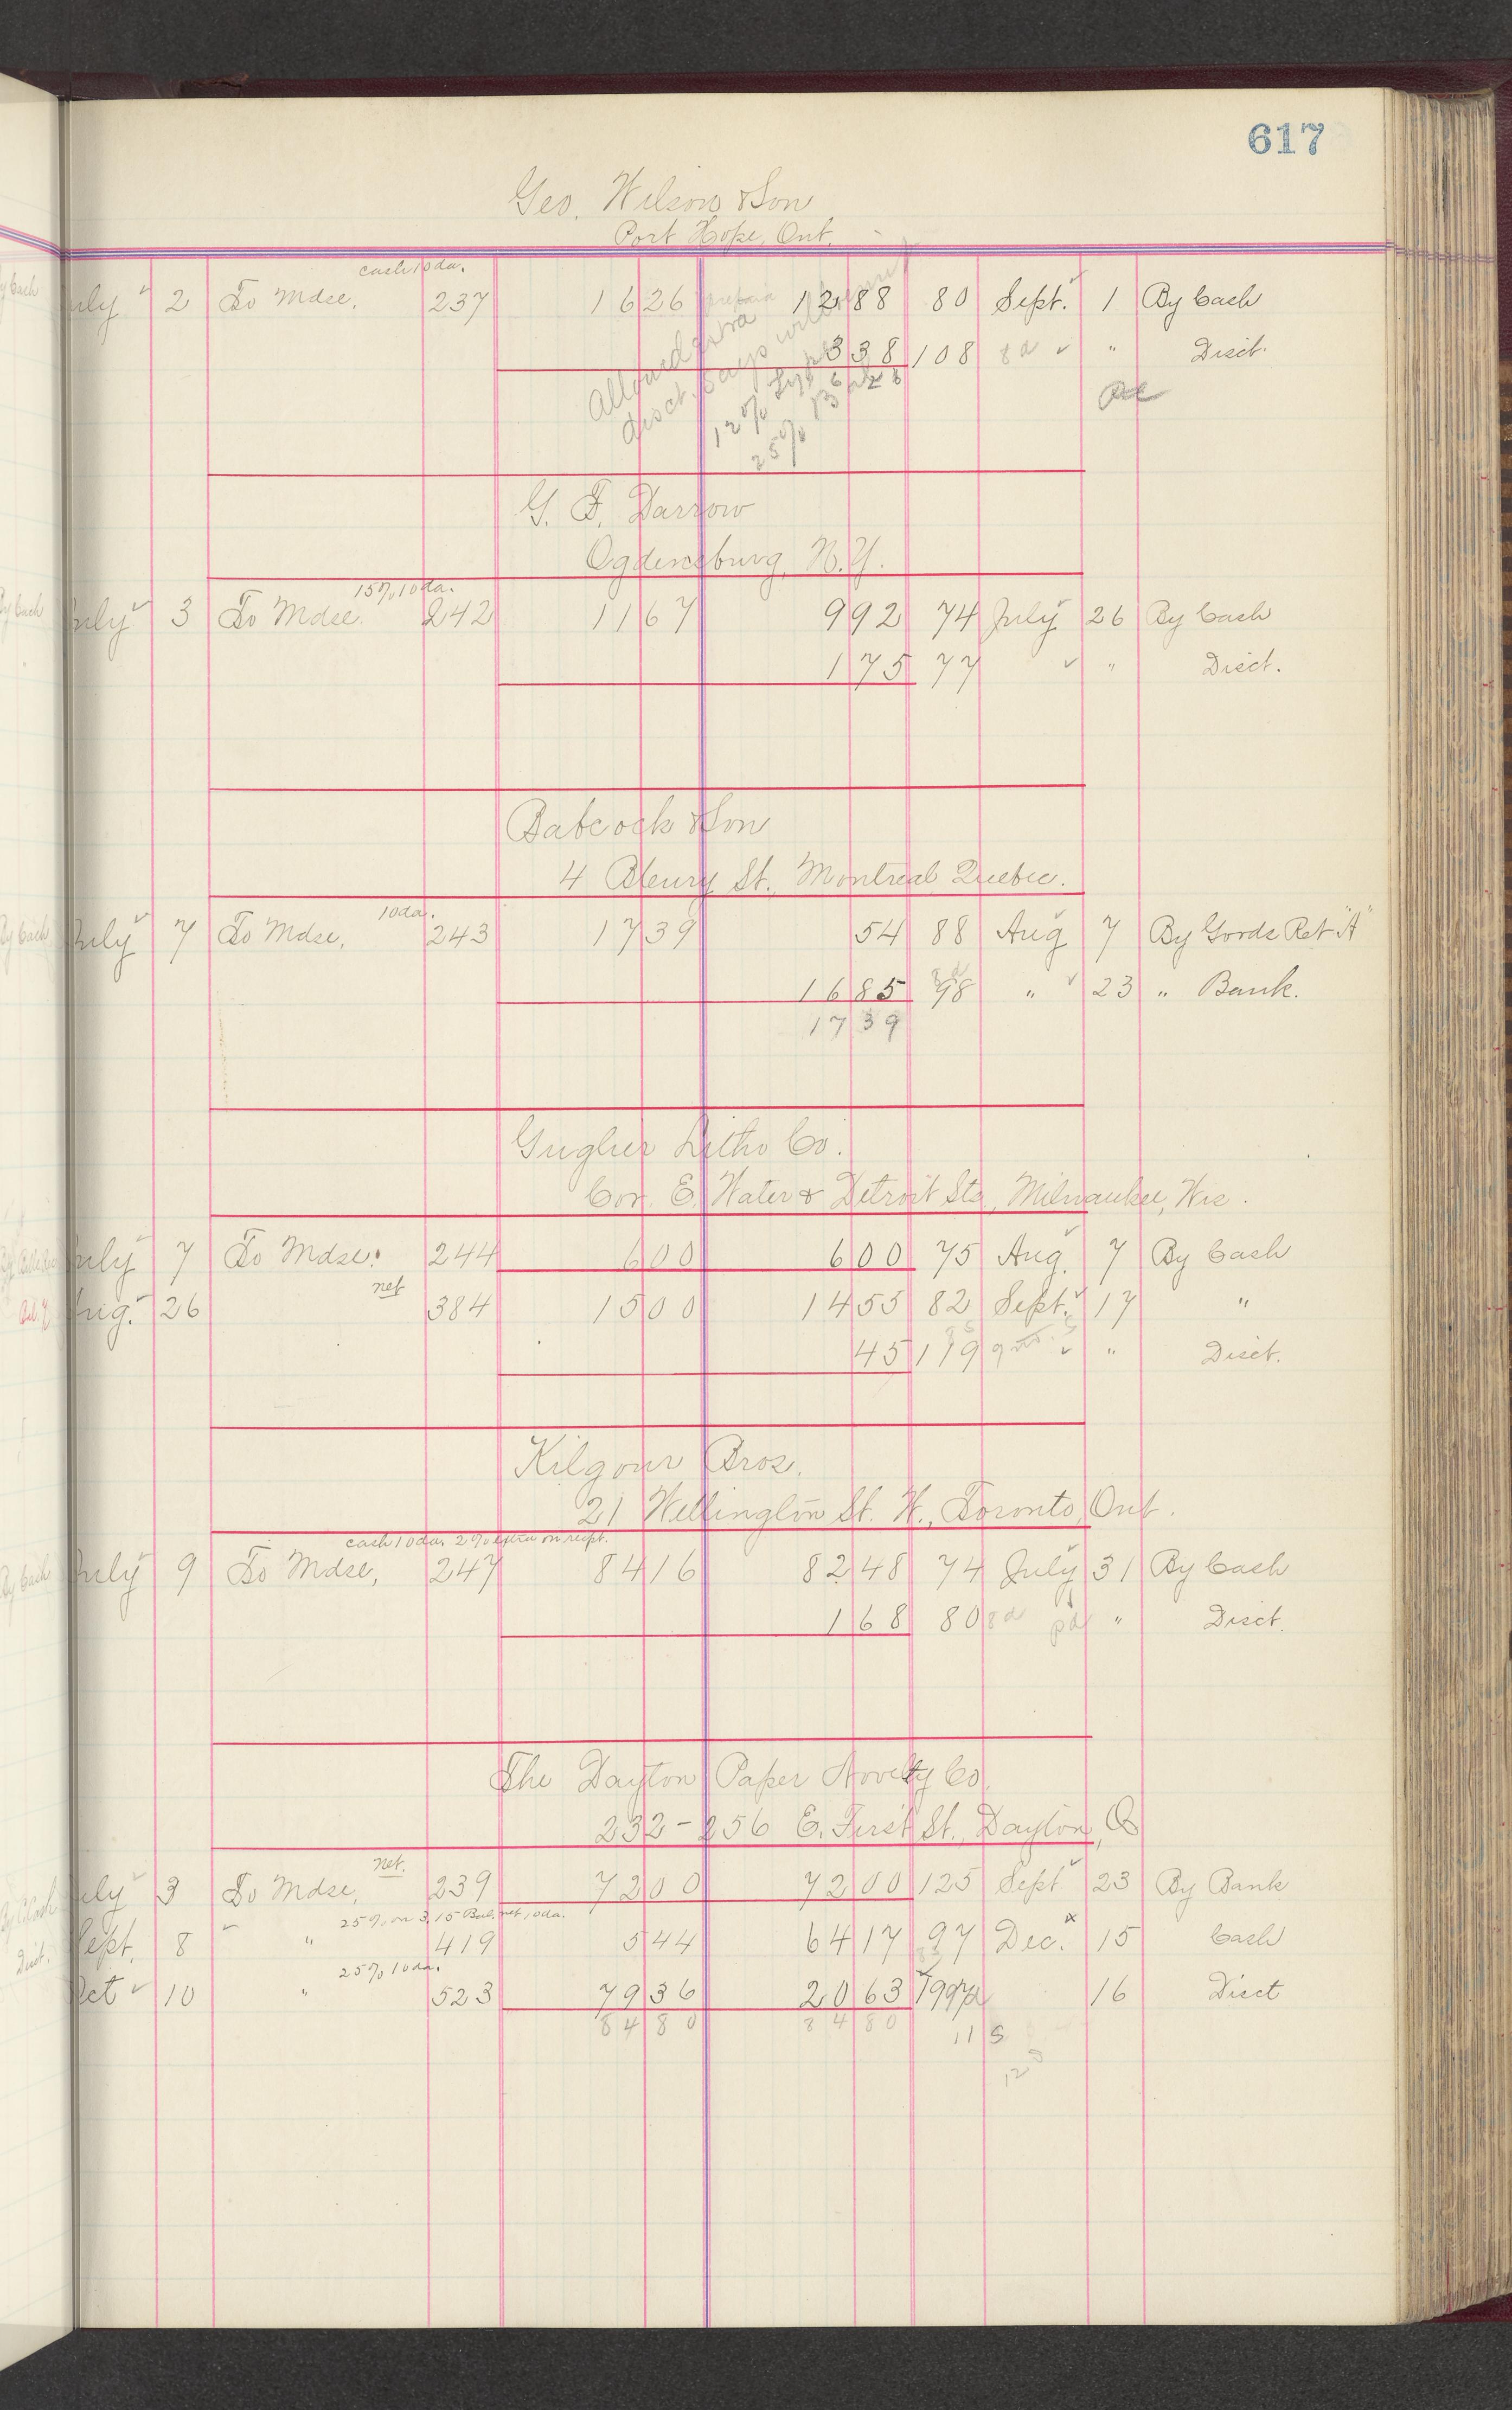 617
Geo. Wilson & Son
Port Hope, Ont.
cash 10 da.
July 2 To Mdse. 237 16 26 12 88 80 Sept. 1 By Cash
3 38 108 8d " Disct.
Allowed extra
disct. says will
12%
25%
G. F. Darrow
Ogdensburg, N.Y.
15% 10 da.
July 3 To Mdse. 242 11 67 9 92 74 July 26 By Cash
1 75 77 " Disct.
Babcock & Son
4 Bleury St., Montreal Quebec.
10 da.
July 7 To Mdse, 243 17 39 54 88 Aug 7 By Goods Ret "A"
16 85 98 " 23 " Bank.
17 39
Gugler Litho Co.
Cor. E. Water & Detroit Sts., Milwaukee, Wis.
July 7 To Mdse. 244 6 00 6 00 75 Aug. 7 By Cash
net
Aug. 26 384 15 00 14 55 82 Sept. 17 "
45 119 " Disct.
Kilgour Bros.
21 Wellington St. W., Toronto, Ont.
cash 10 da. 2% extra on recpt.
July 9 To Mdse, 247 84 16 82 48 74 July 31 By Cash
1 68 80 8d pd " Disct.
The Dayton Paper Novelty Co.
232-256 E. First St., Dayton, O
net.
July 3 To Mdse, 239 72 00 72 00 125 Sept 23 By Bank
25% on 3.15 Bal. net 10 da.
Sept. 8 " 419 5 44 64 17 97 Dec. 15 Cash
25% 10 da.
Oct 10 " 523 79 36 20 63 16 Disct
84 80 84 80